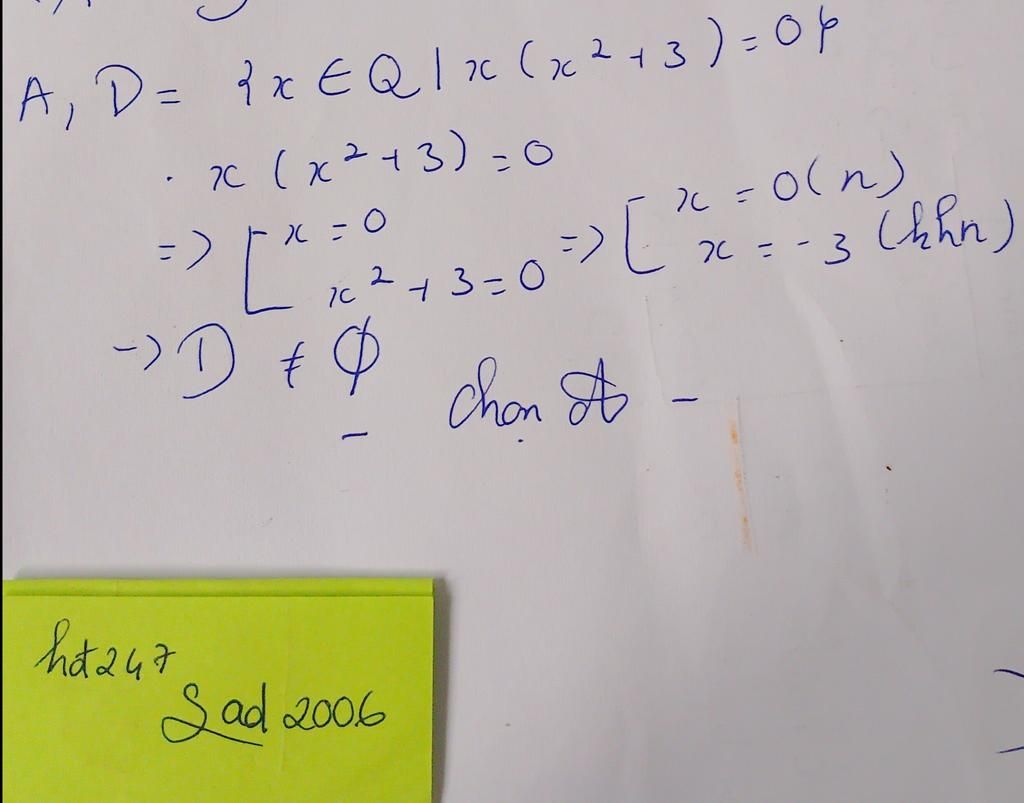 A, D = {x ∈ Q | x (x² + 3) = 0}
· x (x² + 3) = 0
=> [ x = 0 => [ x = 0 (n)
x² + 3 = 0 x = - 3 (khn)
-> D ≠ Ø
chọn A -
hdt247
Sad 2006